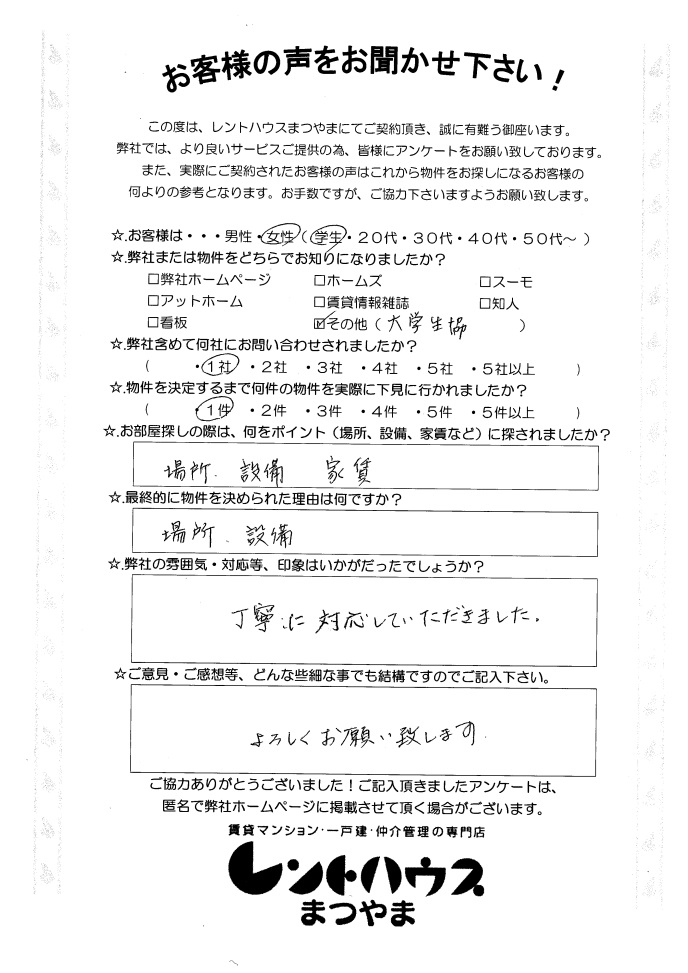 お客様の声をお聞かせ下さい！
この度は、レントハウスまつやまにてご契約頂き、誠に有難う御座います。
弊社では、より良いサービスご提供の為、皆様にアンケートをお願い致しております。
また、実際にご契約されたお客様の声はこれから物件をお探しになるお客様の
何よりの参考となります。お手数ですが、ご協力下さいますようお願い致します。
☆.お客様は・・・男性・女性（学生・２０代・３０代・４０代・５０代～ ）
☆.弊社または物件をどちらでお知りになりましたか？
□弊社ホームページ □ホームズ □スーモ
□アットホーム □賃貸情報雑誌 □知人
□看板 ☑その他（大学生協 ）
☆.弊社含めて何社にお問い合わせされましたか？
（ ・１社 ・２社 ・３社 ・４社 ・５社 ・５社以上 ）
☆.物件を決定するまで何件の物件を実際に下見に行かれましたか？
（ ・１件 ・２件 ・３件 ・４件 ・５件 ・５件以上 ）
☆.お部屋探しの際は、何をポイント（場所、設備、家賃など）に探されましたか？
場所、設備 家賃
☆.最終的に物件を決められた理由は何ですか？
場所、設備
☆.弊社の雰囲気・対応等、印象はいかがだったでしょうか？
丁寧に対応していただきました。
☆ご意見・ご感想等、どんな些細な事でも結構ですのでご記入下さい。
よろしくお願い致します
ご協力ありがとうございました！ご記入頂きましたアンケートは、
匿名で弊社ホームページに掲載させて頂く場合がございます。
賃貸マンション・一戸建・仲介管理の専門店
レントハウス
まつやま